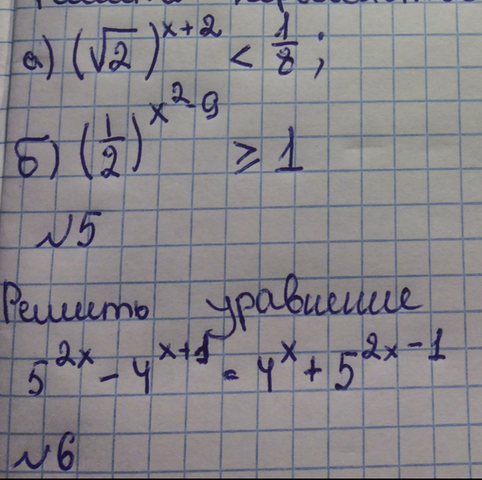 а) (√2)^(x+2) < 1/8;
б) (1/2)^(x^2-9) ≥ 1
№5
Решить уравнение
5^(2x) - 4^(x+1) = 4^x + 5^(2x-1)
№6